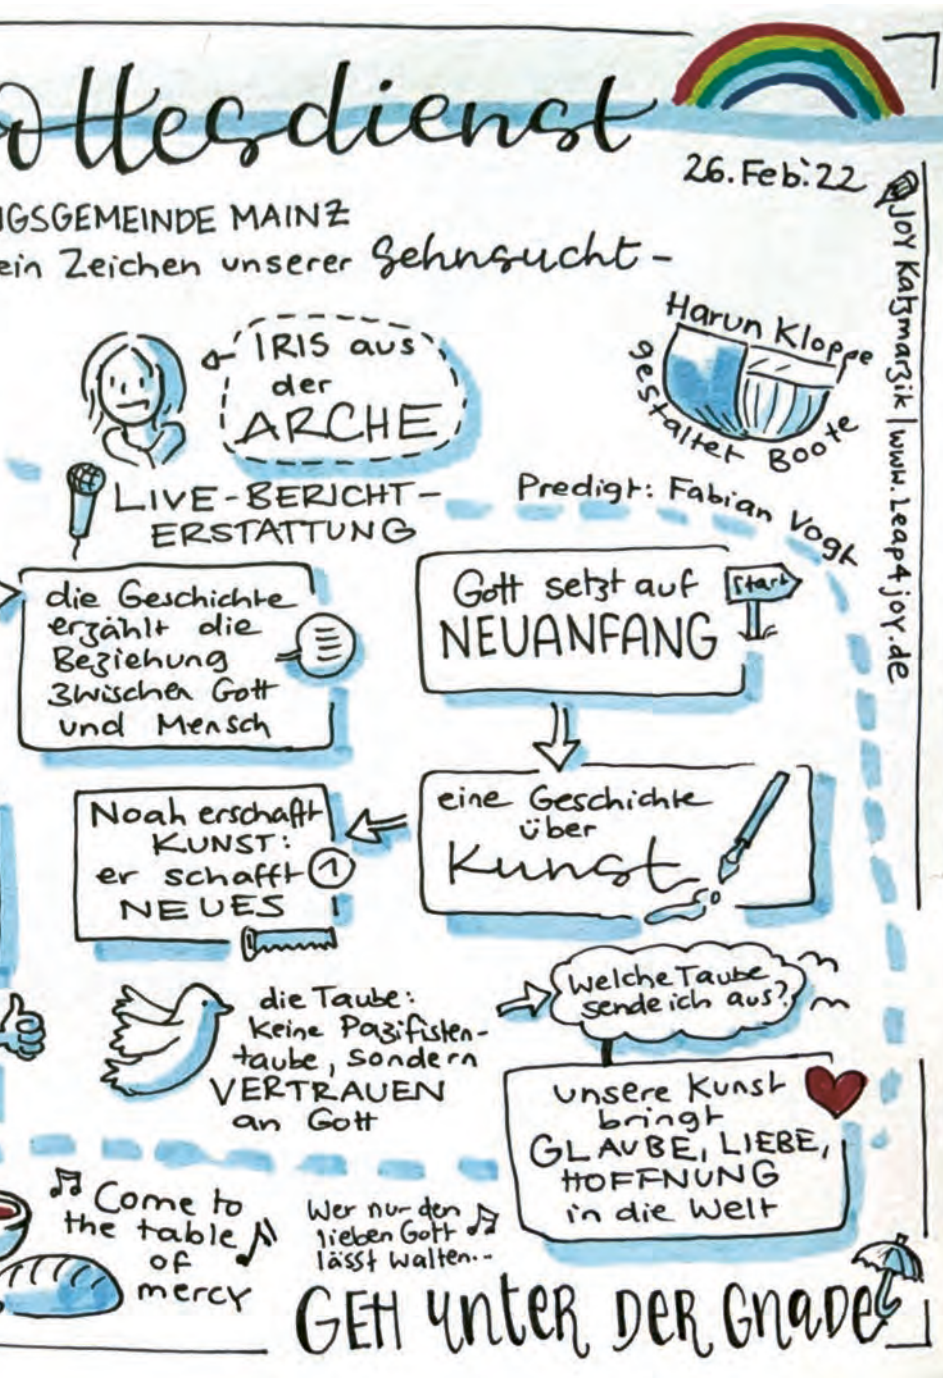 ottesdienst
26. Feb. 22
NGSGEMEINDE MAINZ
ein Zeichen unserer Sehnsucht -
JOY Katzmarzik | www.leap4joy.de
IRIS aus
der
ARCHE
Harun Kloppe
gestaltet Boote
LIVE-BERICHT-
ERSTATTUNG
Predigt: Fabian Vogt
die Geschichte
erzählt die
Beziehung
zwischen Gott
und Mensch
Gott setzt auf
NEUANFANG
Start
eine Geschichte
über
Kunst
Noah erschafft
KUNST:
er schafft
NEUES
1
die Taube:
keine Pazifisten-
taube, sondern
VERTRAUEN
an Gott
Welche Taube
sende ich aus?
unsere Kunst
bringt
GLAUBE, LIEBE,
HOFFNUNG
in die Welt
Come to
the table
of
mercy
Wer nur den
lieben Gott
lässt walten...
GEH UNTER DER GNADE